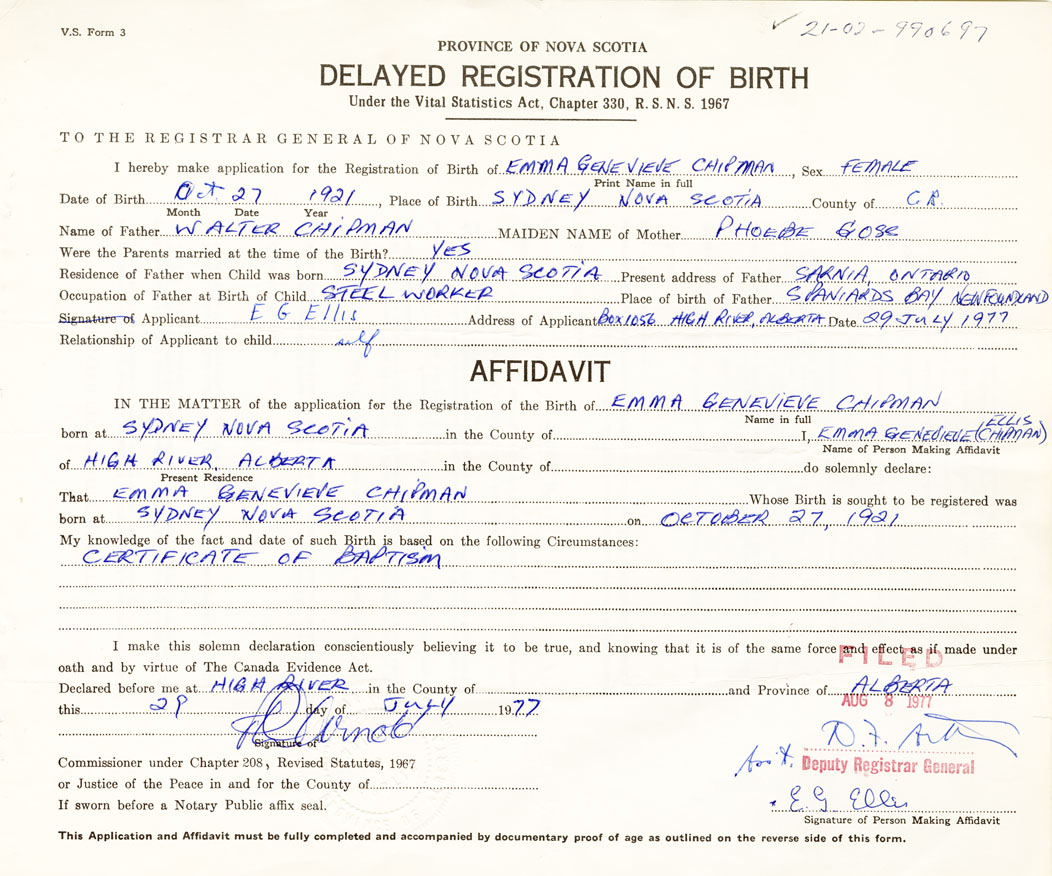 V.S. Form 3
✓ 21-02-990697
PROVINCE OF NOVA SCOTIA
DELAYED REGISTRATION OF BIRTH
Under the Vital Statistics Act, Chapter 330, R. S. N. S. 1967
TO THE REGISTRAR GENERAL OF NOVA SCOTIA
I hereby make application for the Registration of Birth of EMMA GENEVIEVE CHIPMAN, Sex FEMALE
Print Name in full
Date of Birth Oct. 27 1921, Place of Birth SYDNEY NOVA SCOTIA County of C.B.
Month Date Year
Name of Father WALTER CHIPMAN MAIDEN NAME of Mother PHOEBE GOSS
Were the Parents married at the time of the Birth? YES
Residence of Father when Child was born SYDNEY NOVA SCOTIA Present address of Father SARNIA, ONTARIO
Occupation of Father at Birth of Child STEEL WORKER Place of birth of Father SPANIARDS BAY NEWFOUNDLAND
Signature of Applicant E G Ellis Address of Applicant BOX 1056 HIGH RIVER, ALBERTA Date 29 JULY 1977
Relationship of Applicant to child self
AFFIDAVIT
IN THE MATTER of the application for the Registration of the Birth of EMMA GENEVIEVE CHIPMAN
Name in full
born at SYDNEY NOVA SCOTIA in the County of I, EMMA GENEVIEVE ELLIS (CHIPMAN)
Name of Person Making Affidavit
of HIGH RIVER, ALBERTA in the County of do solemnly declare:
Present Residence
That EMMA GENEVIEVE CHIPMAN Whose Birth is sought to be registered was
born at SYDNEY NOVA SCOTIA on OCTOBER 27, 1921
My knowledge of the fact and date of such Birth is based on the following Circumstances:
CERTIFICATE OF BAPTISM
I make this solemn declaration conscientiously believing it to be true, and knowing that it is of the same force and effect as if made under
oath and by virtue of The Canada Evidence Act.
FILED
Declared before me at HIGH RIVER in the County of and Province of ALBERTA
AUG 8 1977
this 29 day of July 1977
Arnold
Signature of
D. F.
Commissioner under Chapter 208, Revised Statutes, 1967
Ass't. Deputy Registrar General
or Justice of the Peace in and for the County of
E G Ellis
If sworn before a Notary Public affix seal.
Signature of Person Making Affidavit
This Application and Affidavit must be fully completed and accompanied by documentary proof of age as outlined on the reverse side of this form.